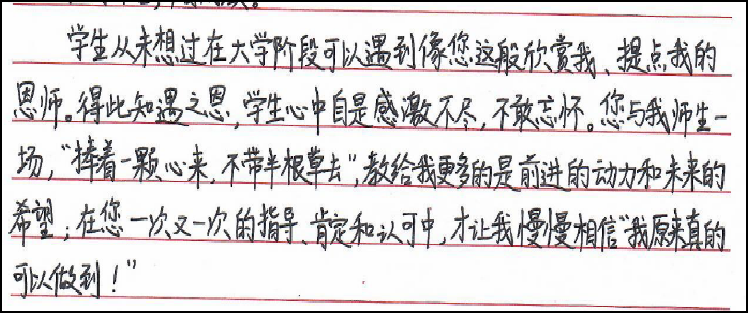 学生从未想过在大学阶段可以遇到像您这般欣赏我、提点我的
恩师。得此知遇之恩,学生心中自是感激不尽,不敢忘怀。您与我师生一
场,“捧着一颗心来,不带半根草去”,教给我更多的是前进的动力和未来的
希望;在您一次又一次的指导、肯定和认可中,才让我慢慢相信“我原来真的
可以做到!”